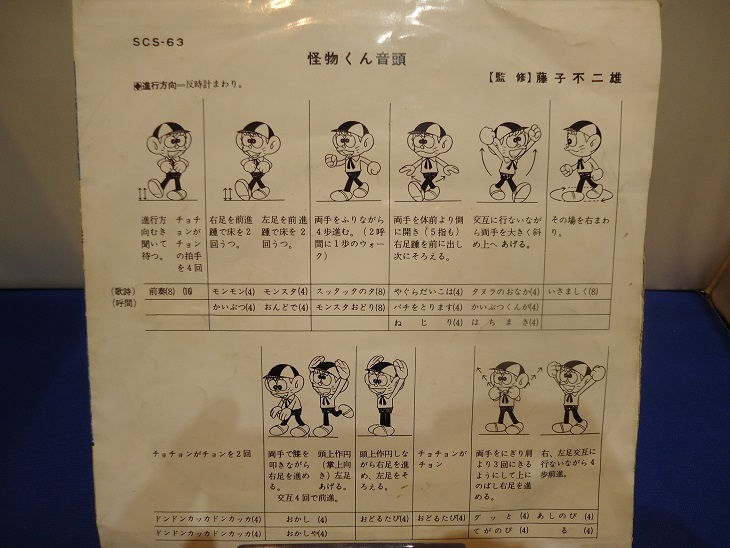 SCS-63
怪物くん音頭
【監 修】藤子不二雄
◆進行方向＝反時計まわり。
進行方向むき聞いて待つ。
チョチョンがチョンの拍手を4回
右足を前進踵で床を2回うつ。
左足を前進踵で床を2回うつ。
両手をふりながら4歩進む。（2呼間に1歩のウォーク）
両手を体前より側に開き（5指も）右足踵を前に出し次にそろえる。
交互に行ないながら両手を大きく斜め上へあげる。
その場を右まわり。
(歌詩)
(呼間)
前奏(8)
モンモン(4) モンスタ(4) スッタッタのタ(8) やぐらだいこは(4) タヌラのおなか(4) いさましく(8)
かいぶつ(4) おんどで(4) モンスタおどり(8) バチをとります(4) かいぶつくんが(4)
ねじり(4) はちまき(4)
チョチョンがチョンを2回
両手で膝を叩きながら右足を進める。
頭上作円（掌上向き）左足あげる。
交互4回で前進。
頭上作円しながら右足を進め、左足をそろえる。
チョチョンがチョン
両手をにぎり肩より3回にきるようにして上にのばし右足を進める。
右、左足交互に行ないながら4歩前進。
ドンドンカッカドンカッカ(4) おかし(4) おどるたび(4) おどるたび(4) グッと(4) あしのび(4)
ドンドンカッカドンカッカ(4) おかしや(4) てがのび(4) る(4)